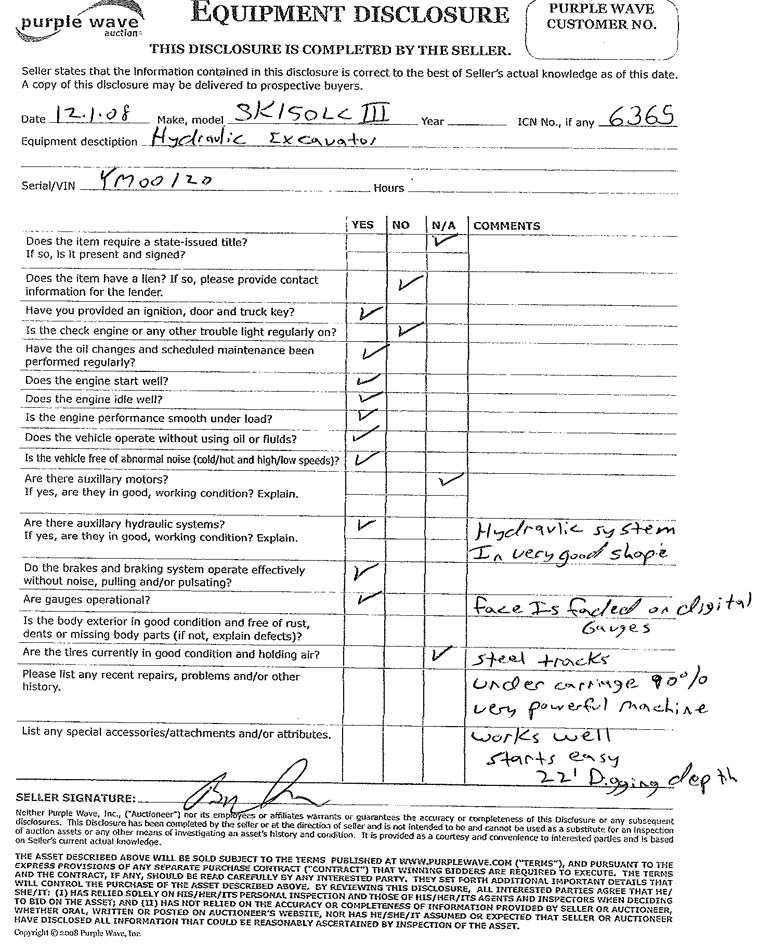 purple wave
auction®
EQUIPMENT DISCLOSURE
PURPLE WAVE
CUSTOMER NO.
THIS DISCLOSURE IS COMPLETED BY THE SELLER.
Seller states that the information contained in this disclosure is correct to the best of Seller's actual knowledge as of this date.
A copy of this disclosure may be delivered to prospective buyers.
Date 12.1.08 Make, model SK150LC III Year ICN No., if any 6365
Equipment desctiption Hydraulic Excavator
Serial/VIN YM00120 Hours
YES NO N/A COMMENTS
Does the item require a state-issued title?
If so, is it present and signed?
Does the item have a lien? If so, please provide contact
information for the lender.
Have you provided an ignition, door and truck key?
Is the check engine or any other trouble light regularly on?
Have the oil changes and scheduled maintenance been
performed regularly?
Does the engine start well?
Does the engine idle well?
Is the engine performance smooth under load?
Does the vehicle operate without using oil or fluids?
Is the vehicle free of abnormal noise (cold/hot and high/low speeds)?
Are there auxillary motors?
If yes, are they in good, working condition? Explain.
Are there auxillary hydraulic systems? Hydraulic system
If yes, are they in good, working condition? Explain. In very good shape
Do the brakes and braking system operate effectively
without noise, pulling and/or pulsating?
Are gauges operational? face Is faded on digital
Gauges
Is the body exterior in good condition and free of rust,
dents or missing body parts (if not, explain defects)?
Are the tires currently in good condition and holding air? steel tracks
Please list any recent repairs, problems and/or other under carriage 90%
history. very powerful machine
List any special accessories/attachments and/or attributes. works well
starts easy
22' Digging depth
SELLER SIGNATURE:
Neither Purple Wave, Inc., ("Auctioneer") nor its employees or affiliates warrants or guarantees the accuracy or completeness of this Disclosure or any subsequent
disclosures. This Disclosure has been completed by the seller or at the direction of seller and is not intended to be and cannot be used as a substitute for an inspection
of auction assets or any other means of investigating an asset's history and condition. It is provided as a courtesy and convenience to interested parties and is based
on Seller's current actual knowledge.
THE ASSET DESCRIBED ABOVE WILL BE SOLD SUBJECT TO THE TERMS PUBLISHED AT WWW.PURPLEWAVE.COM ("TERMS"), AND PURSUANT TO THE
EXPRESS PROVISIONS OF ANY SEPARATE PURCHASE CONTRACT ("CONTRACT") THAT WINNING BIDDERS ARE REQUIRED TO EXECUTE. THE TERMS
AND THE CONTRACT, IF ANY, SHOULD BE READ CAREFULLY BY ANY INTERESTED PARTY. THEY SET FORTH ADDITIONAL IMPORTANT DETAILS THAT
WILL CONTROL THE PURCHASE OF THE ASSET DESCRIBED ABOVE. BY REVIEWING THIS DISCLOSURE, ALL INTERESTED PARTIES AGREE THAT HE/
SHE/IT: (I) HAS RELIED SOLELY ON HIS/HER/ITS PERSONAL INSPECTION AND THOSE OF HIS/HER/ITS AGENTS AND INSPECTORS WHEN DECIDING
TO BID ON THE ASSET; AND (II) HAS NOT RELIED ON THE ACCURACY OR COMPLETENESS OF INFORMATION PROVIDED BY SELLER OR AUCTIONEER,
WHETHER ORAL, WRITTEN OR POSTED ON AUCTIONEER'S WEBSITE, NOR HAS HE/SHE/IT ASSUMED OR EXPECTED THAT SELLER OR AUCTIONEER
HAVE DISCLOSED ALL INFORMATION THAT COULD BE REASONABLY ASCERTAINED BY INSPECTION OF THE ASSET.
Copyright © 2008 Purple Wave, Inc.